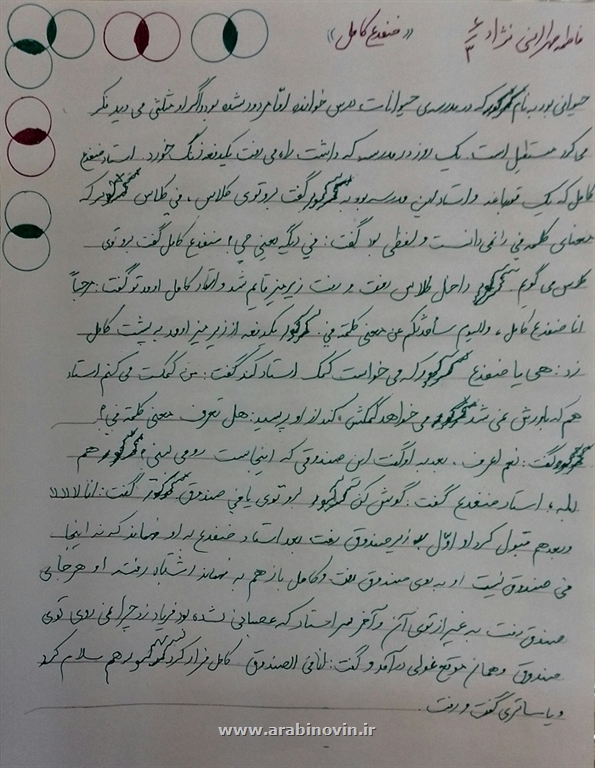 فاطمه مهرابی نژاد ۶/۳
«ضفدع کامل»
حیوانی بود به نام که در مدرسه‌ی حیوانات درس خوانده امّا مردود شده بود و اگر او مثلثی می دید فکر
می کرد مستطیل است. یک روز در مدرسه که داشت راه می رفت یکدفعه زنگ خورد. استاد ضفدع
کامل که یک قورباغه و استاد این مدرسه بود به گفت برو توی کلاس، فی کلاس که
معنای کلمه فی را نمی دانست و لفظی بود گفت: فی دیگه یعنی چی؟ ضفدع کامل گفت برو توی
کلاس می گویم. داخل کلاس رفت و رفت زیر میز قایم شد و استاد کامل آمد تو گفت: مرحباً
انا ضفدع کامل، والیوم سأحدثکم عن معنی کلمة فی. یکدفعه از زیر میز آمد به پشت کامل
زد: هی یا ضفدع که می خواست کمک استاد کند گفت: من کمکت می کنم استاد
هم که باورش نمی شد می خواهد کمکش کند از او پرسید: هل تعرف معنی کلمة فی؟
گفت: نعم اعرف. بعد به او گفت این صندوقی که اینجاست رو می بینی؟ هم
بله، استاد ضفدع گفت: گوش کن برو توی یا فی صندوق گفت: انا؟!!!!
و بعد هم قبول کرد او اوّل به زیر صندوق رفت بعد استاد ضفدع به او فهماند که نه اینجا
فی صندوق نیست او به روی صندوق رفت و کامل باز هم به فهماند اشتباه رفته او هر جای
صندوق رفت به غیر از توی آن و آخر سر استاد که عصبانی شده بود فریاد زد چرا نمی روی توی
صندوق و همان موقع غولی در آمد و گفت: انا فی الصندوق. کامل فرار کرد هم سلام کرد
و یا ساتری گفت و رفت.
www.arabinovin.ir